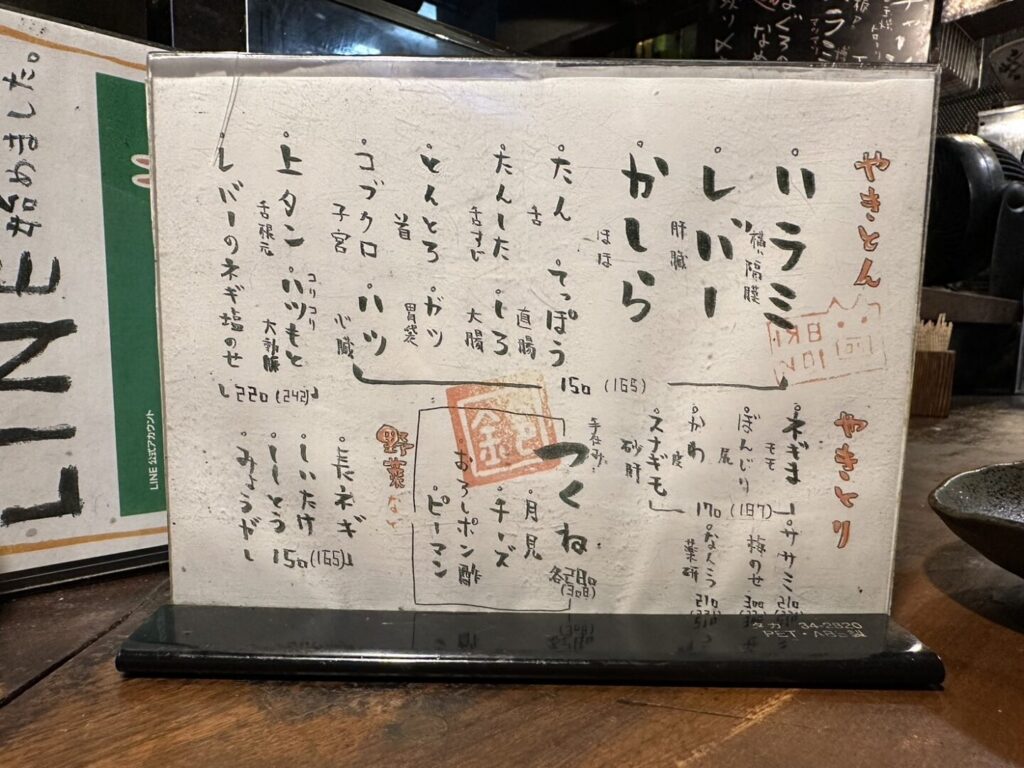 やきとん
ハラミ
横隔膜
レバー
肝臓
かしら
ほほ
たん
舌
てっぽう
直腸
たんした
舌すじ
しろ
大腸
とんとろ
首
ガツ
胃袋
コブクロ
子宮
ハツ
心臓
150(165)
上タン
舌根元
コリコリ
ハツもと
大動脈
レバーのネギ塩のせ
220(242)
やきとり
ネギま
モモ
ぼんじり
尾
かわ
皮
スナギモ
砂肝
170(187)
ササミ
210
梅のせ
300
なんこつ
薬研
210
手仕込み
つくね
各280
(308)
月見
チーズ
おろしポン酢
ピーマン
野菜など
長ネギ
しいたけ
ししとう
みょうがし
150(165)
LINE始めました。
LINE公式アカウント
34-2820
PET・ABS製